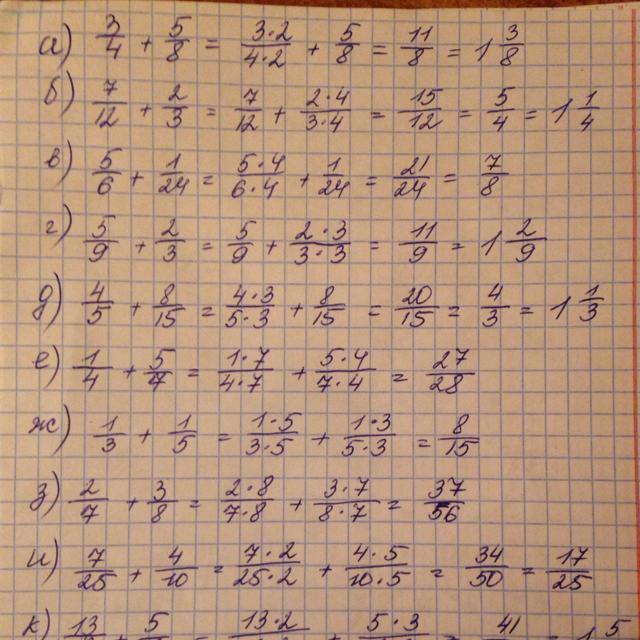 а) 3/4 + 5/8 = 3·2/4·2 + 5/8 = 11/8 = 1 3/8
б) 7/12 + 2/3 = 7/12 + 2·4/3·4 = 15/12 = 5/4 = 1 1/4
в) 5/6 + 1/24 = 5·4/6·4 + 1/24 = 21/24 = 7/8
г) 5/9 + 2/3 = 5/9 + 2·3/3·3 = 11/9 = 1 2/9
д) 4/5 + 8/15 = 4·3/5·3 + 8/15 = 20/15 = 4/3 = 1 1/3
е) 1/4 + 5/7 = 1·7/4·7 + 5·4/7·4 = 27/28
ж) 1/3 + 1/5 = 1·5/3·5 + 1·3/5·3 = 8/15
з) 2/7 + 3/8 = 2·8/7·8 + 3·7/8·7 = 37/56
и) 7/25 + 4/10 = 7·2/25·2 + 4·5/10·5 = 34/50 = 17/25
к) 13 + 5 = 13·2 + 5·3 = 41 = 1 5